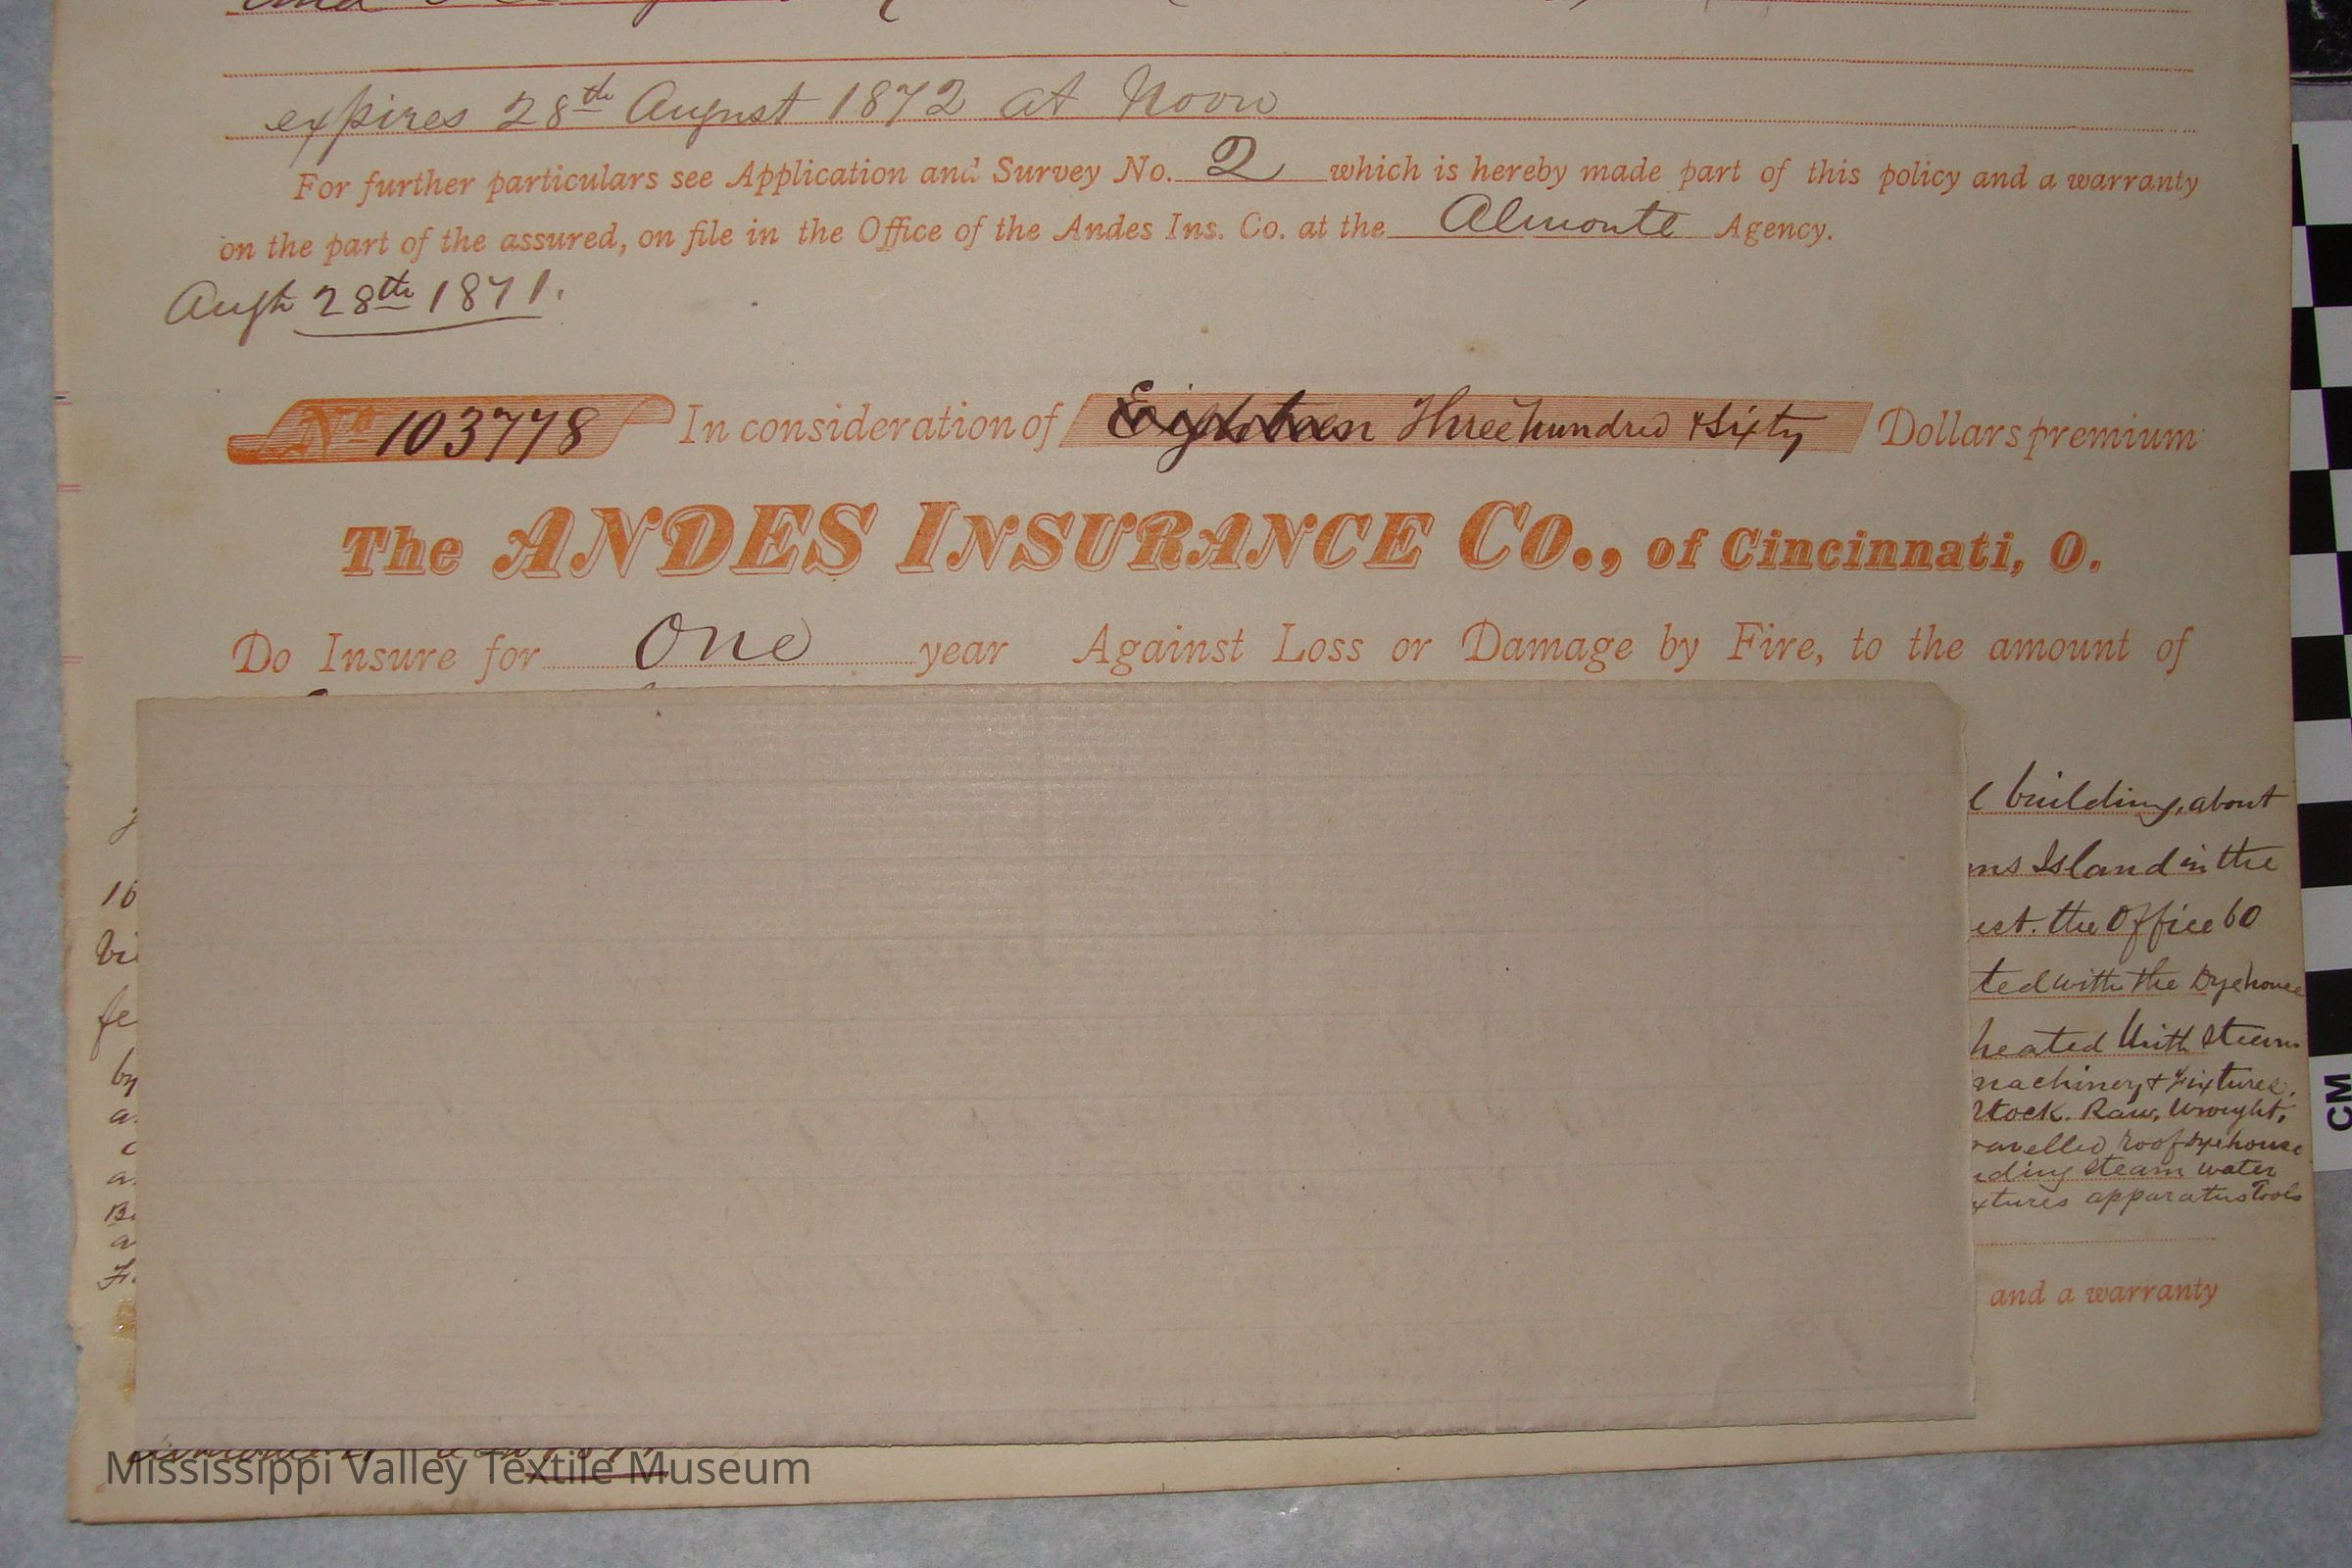 expires 28th August 1872 at Noon
For further particulars see Application and Survey No. 2 which is hereby made part of this policy and a warranty
on the part of the assured, on file in the Office of the Andes Ins. Co. at the Almonte Agency.
Augt 28th 1871.
No 103778 In consideration of Eighteen Three hundred & Sixty Dollars premium
The ANDES INSURANCE CO., of Cincinnati, O.
Do Insure for One year Against Loss or Damage by Fire, to the amount of
building, about
Island in the
the Office 60
with the Dyehouse
heated with Steam
machinery & Fixtures.
Stock. Raw, Wrought,
roof dyehouse
steam water
apparatus Tools
and a warranty
CM
Mississippi Valley Textile Museum